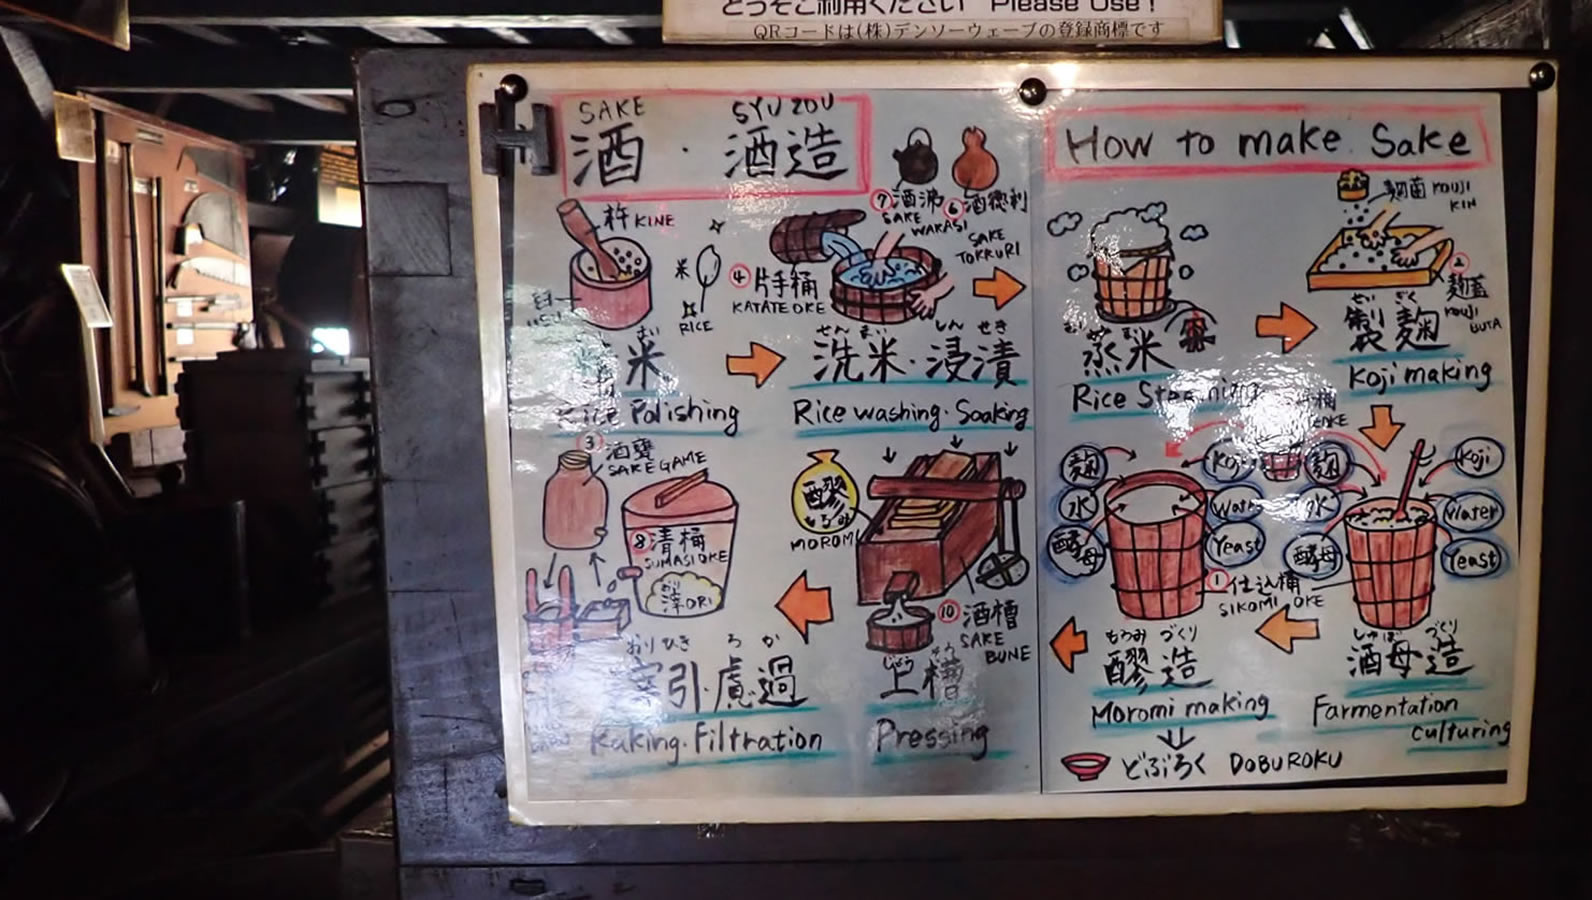 どうぞご利用ください Please Use!
QRコードは(株)デンソーウェーブの登録商標です
SAKE SYUZOU
酒・酒造
How to make Sake
杵 KINE
米
RICE
米
Rice Polishing
④片手桶
KATATE OKE
せんまい しんせき
洗米・浸漬
Rice washing・Soaking
⑦酒沸
SAKE
WAKASI
⑥酒徳利
SAKE
TOKKURI
蒸米
Rice Steaming
麹菌 KOUJI
KIN
②
麹蓋
KOUJI
BUTA
せい ぎく
製麹
Koji making
OKE
麹
水
酵母
Koji
Water
Yeast
麹
水
酵母
Koji
Water
Yeast
①仕込桶
SIKOMI OKE
しゅぼ づくり
酒母造
Farmentation
culturing
もろみ づくり
醪造
Moromi making
どぶろく DOBUROKU
醪
もろみ
MOROMI
⑩酒槽
SAKE
BUNE
じょうそう
上槽
Pressing
③酒甕
SAKEGAME
⑧清桶
SUMASIOKE
おり
滓ORI
おりひき ろか
引・慮過
Raking・Filtration